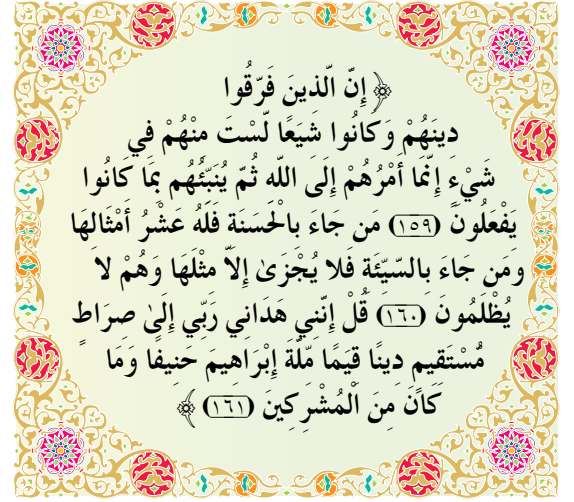 ﴿ إِنَّ الَّذِينَ فَرَّقُوا
دِينَهُمْ وَكَانُوا شِيَعًا لَّسْتَ مِنْهُمْ فِي
شَيْءٍ إِنَّمَا أَمْرُهُمْ إِلَى اللَّهِ ثُمَّ يُنَبِّئُهُم بِمَا كَانُوا
يَفْعَلُونَ (١٥٩) مَن جَاءَ بِالْحَسَنَةِ فَلَهُ عَشْرُ أَمْثَالِهَا
وَمَن جَاءَ بِالسَّيِّئَةِ فَلا يُجْزَىٰ إِلاَّ مِثْلَهَا وَهُمْ لاَ
يُظْلَمُونَ (١٦٠) قُلْ إِنَّنِي هَدَانِي رَبِّي إِلَىٰ صِرَاطٍ
مُّسْتَقِيمٍ دِينًا قِيَمًا مِّلَّةَ إِبْرَاهِيمَ حَنِيفًا وَمَا
كَانَ مِنَ الْمُشْرِكِينَ (١٦١) ﴾